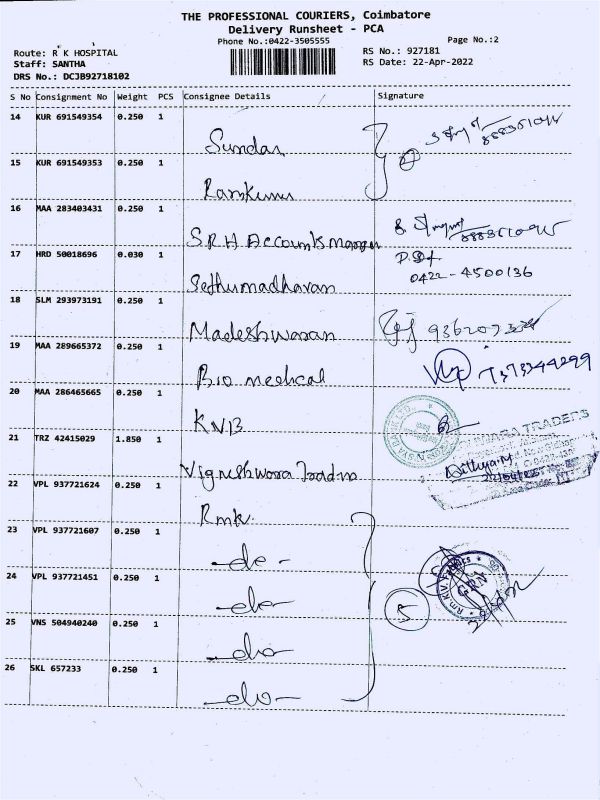 THE PROFESSIONAL COURIERS, Coimbatore
Delivery Runsheet - PCA
Phone No.:0422-3505555
Page No.:2
Route: R K HOSPITAL
RS No.: 927181
Staff: SANTHA
RS Date: 22-Apr-2022
DRS No.: DCJB92718102
S No Consignment No Weight PCS Consignee Details Signature
14 KUR 691549354 0.250 1
Sundar
15 KUR 691549353 0.250 1
Ramkumar
16 MAA 283403431 0.250 1
SRH Accounts Manager
17 HRD 50018696 0.030 1
0422-4500136
Sethumadhavan
18 SLM 293973191 0.250 1
Madeshwaran
19 MAA 289665372 0.250 1
7373344299
Bio medical
20 MAA 286465665 0.250 1
KVB
21 TRZ 42415029 1.850 1
TRADERS
Vigneshwara Traders
22 VPL 937721624 0.250 1
Rmk.
23 VPL 937721607 0.250 1
-do-
24 VPL 937721451 0.250 1
GRN
-do-
5
25 VNS 504940240 0.250 1
-do-
26 SKL 657233 0.250 1
-do-